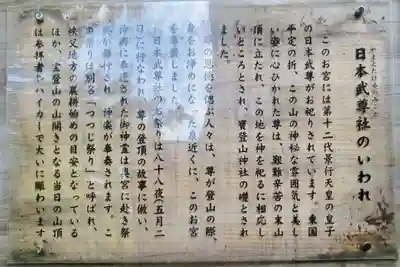 日本武尊社のいわれ
やまとたけるのみこと
このお宮には第十二代景行天皇の皇子
の日本武尊がお祀りされています。東国
平定の折、この山の神秘な雰囲気と美し
い姿に心ひかれた尊は、艱難辛苦の末山
頂に立たれ、この地を神を祀るに相応し
いところとされ、寶登山神社の礎とされ
ました。
の恩徳を偲ぶ人々は、尊が登山の際、
身をお浄めになった泉近くに、このお宮
を
しました。
日本武尊社のお祭りは八十八夜(五月二
日)に行なわれ、尊の登頂の故事に倣い、
神輿に奉遷された御神霊は奥宮に赴き祭
が
され、神楽が奉奏されます。こ
の祭りは別名「つつじ祭り」と呼ばれ、
秩父地方の農耕始めの目安となっている
ほか、宝登山の山開きとなる当日の山頂
は参拝者とハイカーで大いに賑わいます